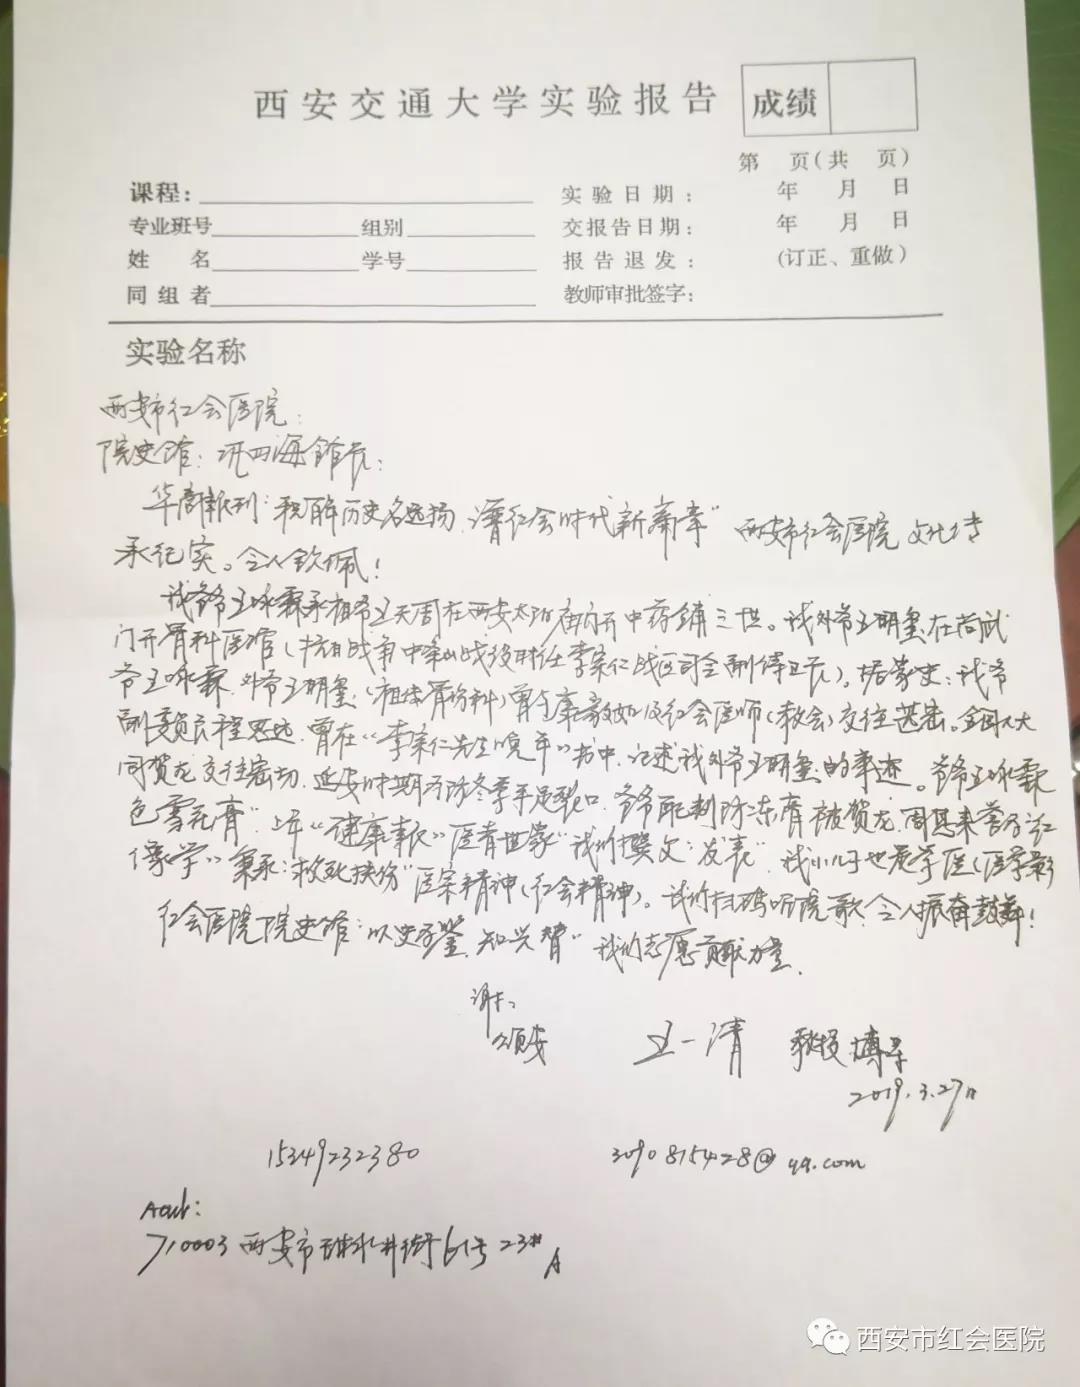 西安交通大学实验报告
成绩
第 页(共 页)
课程: 实验日期: 年 月 日
专业班号 组别 交报告日期: 年 月 日
姓 名 学号 报告退发: (订正、重做)
同组者 教师审批签字:
实验名称
西安市红会医院:
院史馆: 巩四海馆长:
华商报刊:积解历史名远扬,谱红会时代新篇章" 西安市红会医院文化传
承纪实。令人钦佩!
我爷爷王咏霖承祖爷王天周在西安 开中药铺三世。我外爷王明玺在尚武
门开骨科医馆(抗日战争中 战役时任李宗仁战区司令副侍卫长)。据家史:我爷
爷王咏霖,外爷王明玺,(祖传骨伤科)曾与 红会医师(教会)交往甚密。全国人大
副委员长程思远,曾在"李宗仁先生晚年"书中,记述我外爷王明玺的事迹。爷爷王咏霖
同贺龙交往密切,延安时期 防冬季手足裂口,爷爷配制防冻膏被贺龙、周恩来誉为红
色雪花膏"。上年"健康报""医者世家"我们撰文:发表"。我小儿子也是学医(医学影
像学)" 秉承:救死扶伤"医宗精神(红会精神)。我们扫码听院歌,令人振奋鼓舞!
红会医院院史馆:以史为鉴,知兴替" 我们志愿贡献力量。
谢
颂安
王一清 教授 博导
2019.3.27日
15349232380 3090815428@qq.com
Add:
710003 西安市甜水井街61号23#
A
西安市红会医院